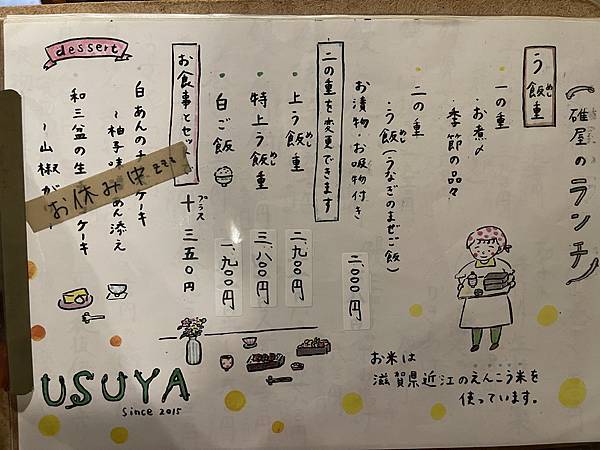 碓屋のランチ
う飯重
めし
一の重
・お煮〆
・季節の品々
二の重
・う飯(うなぎのまぜご飯)
めし
お漬物・お吸物付き
二、000円
二の重を変更できます
・上う飯重
めし
二、九00円
・特上う飯重
めし
三、八00円
・白ご飯
一、九00円
お食事とセット
プラス
十三五0円
dessert
白あんの
ケーキ
~柚子味
あん添え
和三盆の生
ケーキ
~山椒が
お休み中zzz
USUYA
Since 2015
お米は
滋賀県近江のえんこう米を
使っています。